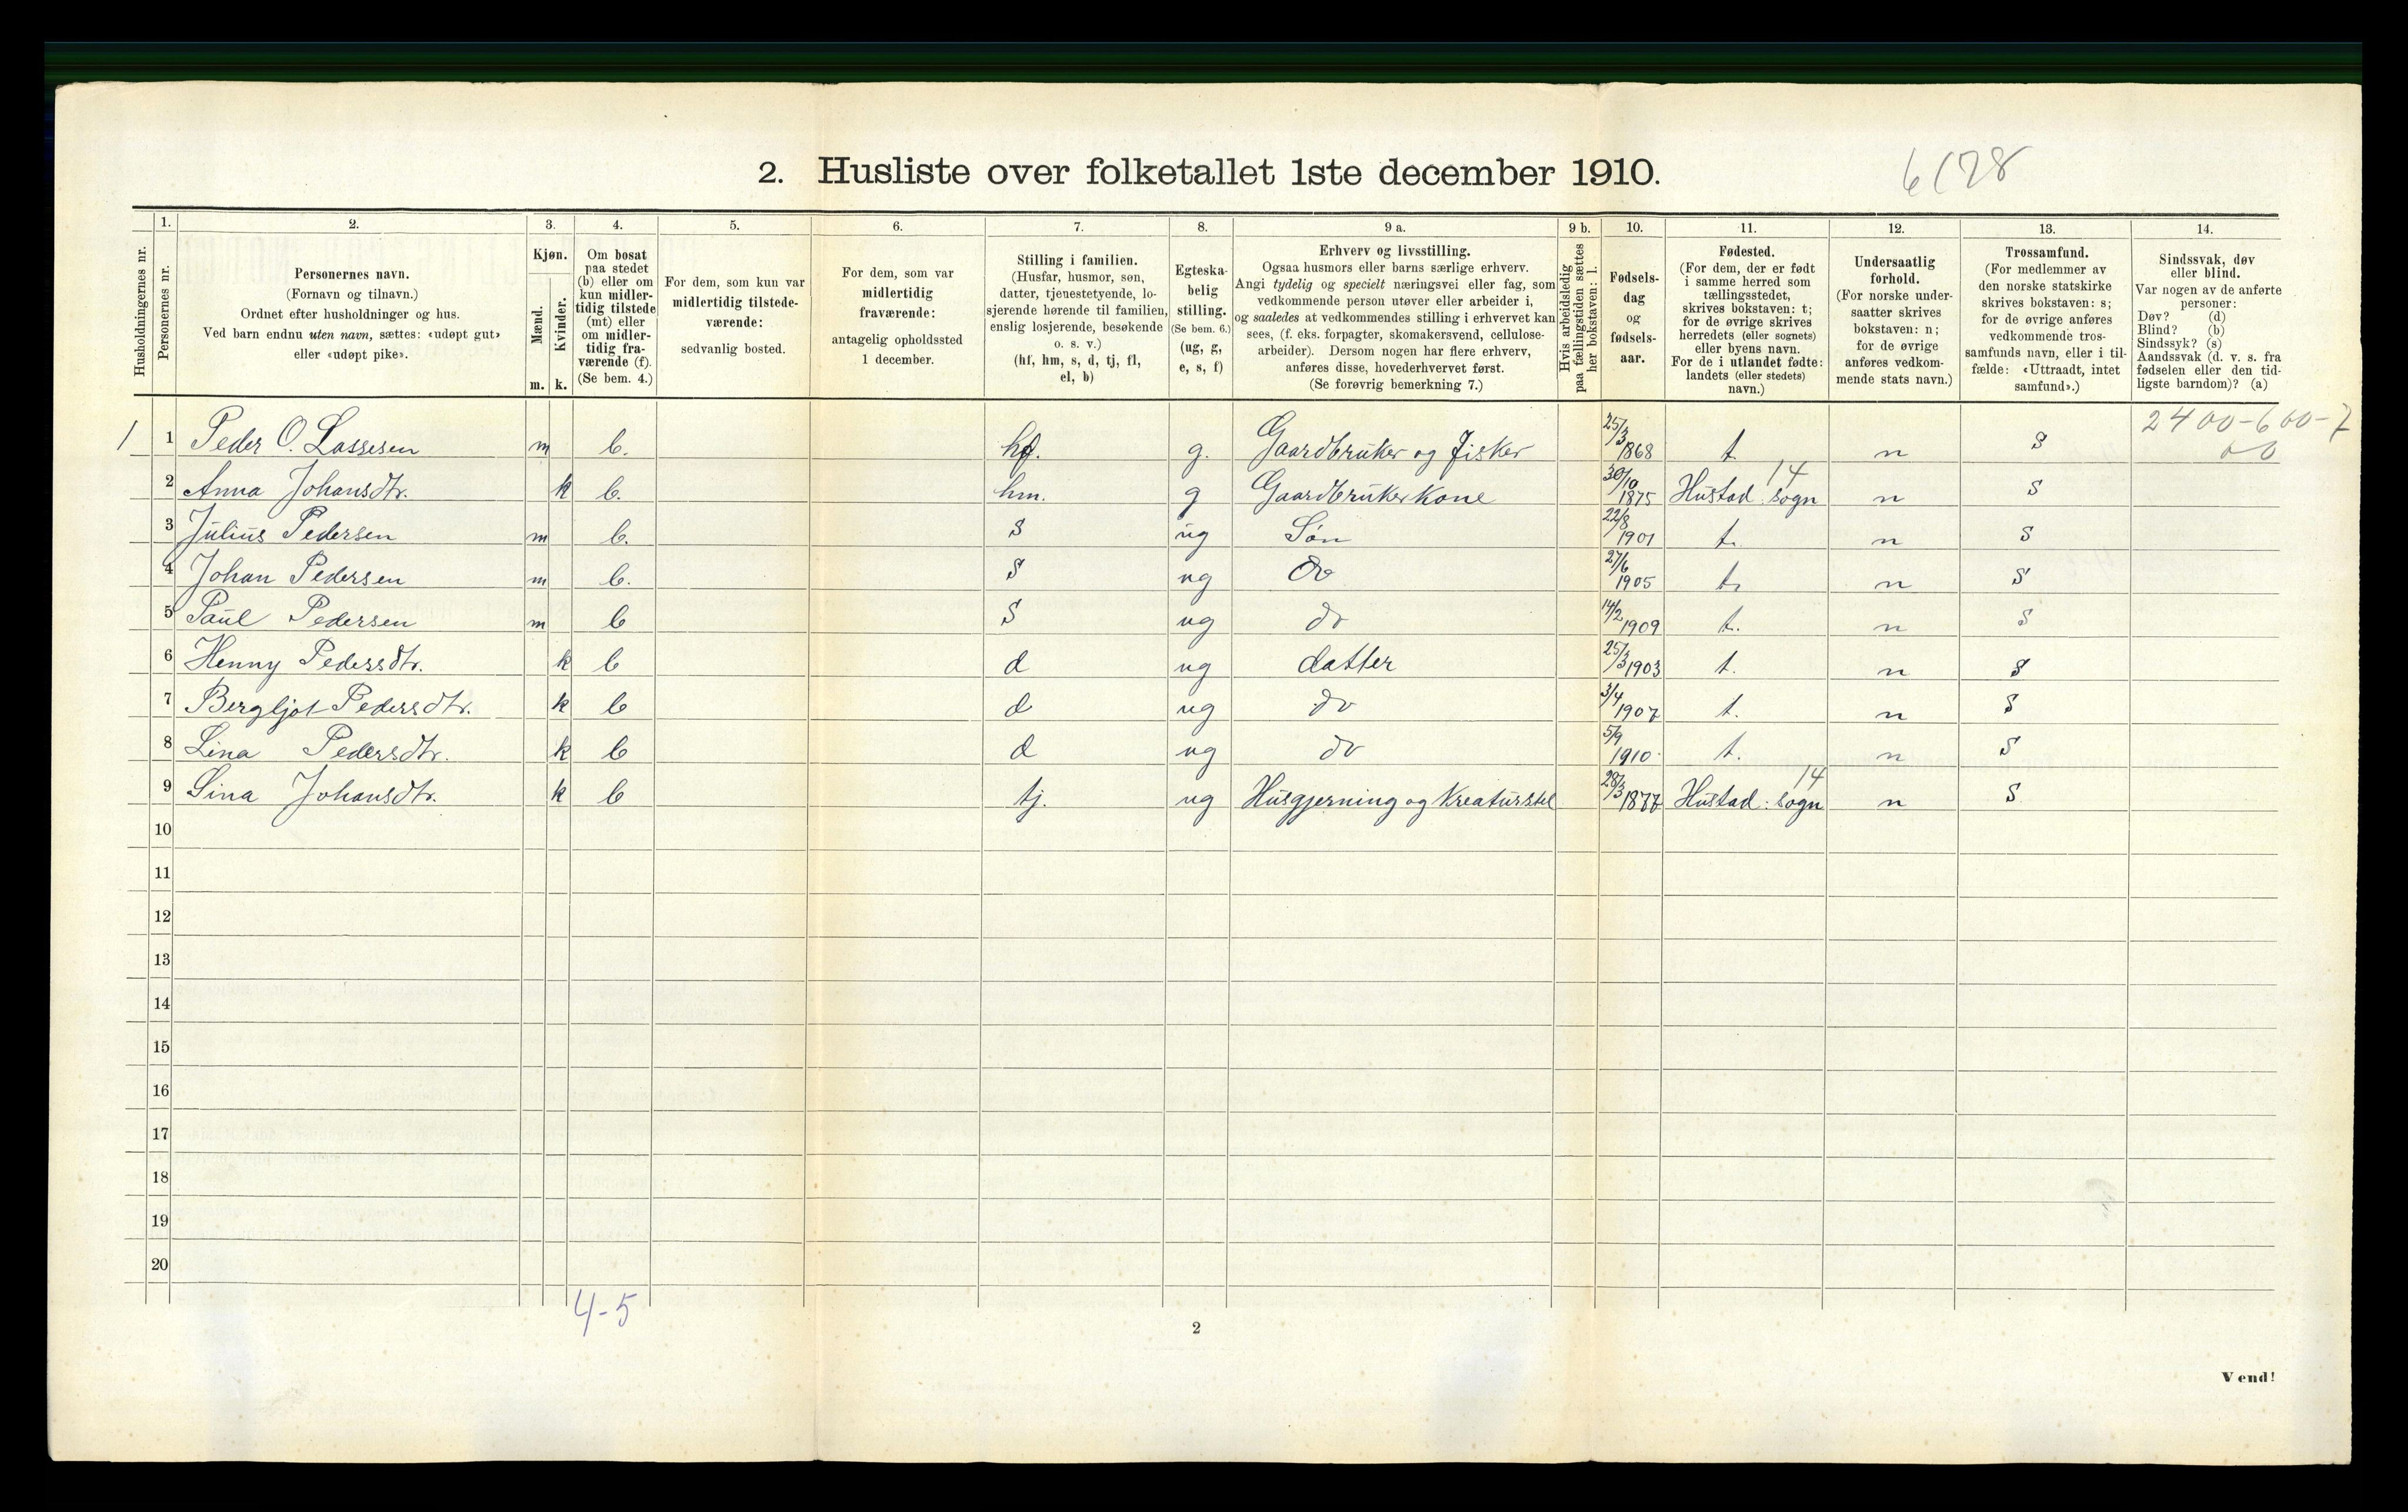 2. Husliste over folketallet 1ste december 1910.
6(28
Husholdningernes nr.
1. Personernes nr.
2. Personernes navn.
(Fornavn og tilnavn.)
Ordnet efter husholdninger og hus.
Ved barn endnu uten navn, sættes: «udøpt gut»
eller «udøpt pike».
3. Kjøn.
Mænd. m.
Kvinder. k.
4. Om bosat
paa stedet
(b) eller om
kun midler-
tidig tilstede
(mt) eller
om midler-
tidig fra-
værende (f).
(Se bem. 4.)
5. For dem, som kun var
midlertidig tilstede-
værende:
sedvanlig bosted.
6. For dem, som var
midlertidig
fraværende:
antagelig opholdssted
1 december.
7. Stilling i familien.
(Husfar, husmor, søn,
datter, tjenestetyende, lo-
sjerende hørende til familien,
enslig losjerende, besøkende
o. s. v.)
(hf, hm, s, d, tj, fl,
el, b)
8. Egteska-
belig
stilling.
(Se bem. 6.)
(ug, g,
e, s, f)
9 a. Erhverv og livsstilling.
Ogsaa husmors eller barns særlige erhverv.
Angi tydelig og specielt næringsvei eller fag, som
vedkommende person utøver eller arbeider i,
og saaledes at vedkommendes stilling i erhvervet kan
sees, (f. eks. forpagter, skomakersvend, cellulose-
arbeider). Dersom nogen har flere erhverv,
anføres disse, hovederhvervet først.
(Se forøvrig bemerkning 7.)
9 b. Hvis arbeidsledig
paa tællingstiden sættes
her bokstaven: l.
10. Fødsels-
dag
og
fødsels-
aar.
11. Fødested.
(For dem, der er født
i samme herred som
tællingsstedet,
skrives bokstaven: t;
for de øvrige skrives
herredets (eller sognets)
eller byens navn.
For de i utlandet fødte:
landets (eller stedets)
navn.)
12. Undersaatlig
forhold.
(For norske under-
saatter skrives
bokstaven: n;
for de øvrige
anføres vedkom-
mende stats navn.)
13. Trossamfund.
(For medlemmer av
den norske statskirke
skrives bokstaven: s;
for de øvrige anføres
vedkommende tros-
samfunds navn, eller i til-
fælde: «Uttraadt, intet
samfund».)
14. Sindssvak, døv
eller blind.
Var nogen av de anførte
personer:
Døv? (d)
Blind? (b)
Sindssyk? (s)
Aandssvak (d. v. s. fra
fødselen eller den tid-
ligste barndom)? (a)
2400-600-7
00
1 1 Peder O. Lassesen m b. hf. g. Gaardbruker og Fisker 25/3 1868 t. n S
2 Anna Johansdtr. k b. hm. g Gaardbrukerkone 30/10 1875 Hustad sogn 14 n S
3 Julius Pedersen m b. S ug Søn 22/8 1901 t. n S
4 Johan Pedersen m b. S ug do 27/6 1905 t. n S
5 Paul Pedersen m b S ug do 14/2 1909 t. n S
6 Henny Pedersdtr. k b d ug datter 25/3 1903 t. n S
7 Bergljot Pedersdtr. k b d ug do 3/4 1907 t. n S
8 Lina Pedersdtr. k b d ug do 5/9 1910 t. n S
9 Sina Johansdtr. k b tj. ug Husgjerning og Kreaturstel 28/3 1877 Hustad: sogn 14 n S
10
11
12
13
14
15
16
17
18
19
20
4-5
2
Vend!